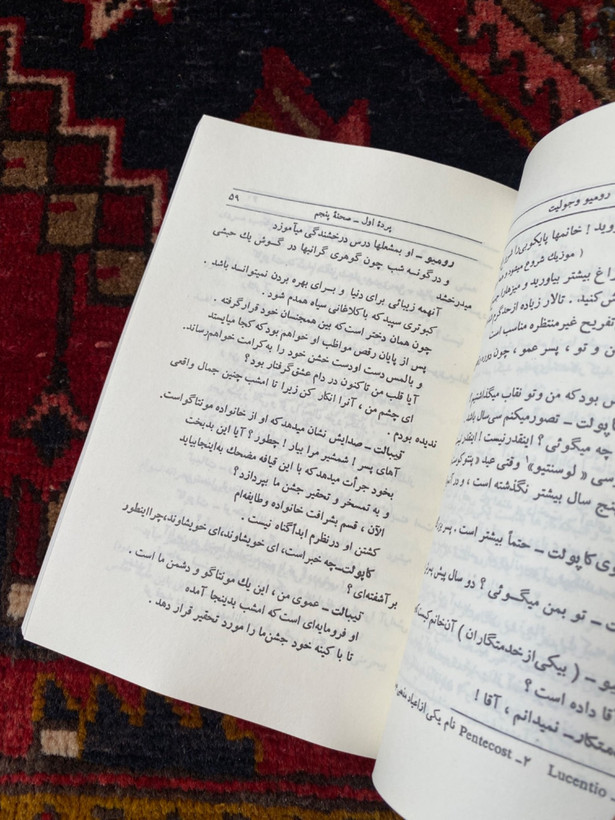 ۵۹
پردهٔ اول ــ صحنهٔ پنجم
رومیو ــ او بمشعلها درس درخشندگی میآموزد
و درگونه شب چون گوهری گرانبها در گوش یك حبشی
میدرخشد
آنهمه زیبائی برای دنیا و برای بهره بردن نمیتوانسد باشد .
کبوتری سپید که باکلاغانی سیاه همدم شود .
چون همان دختر است‌که بین همجنسان خود قرارگرفته .
پس از پایان رقص مواظب او خواهم بود که کجا میایستد
و بالمس دست او دست خشن خود را به کرامت خواهم‌رساند.
آیا قلب من تاکنون در دام عشق گرفتار بود؟
ای چشم من ، آنرا انکار کن زیرا تا امشب چنین جمال واقعی
ندیده بودم .
تیبالت ــ صدایش نشان میدهد که او از خانواده مونتاگواست.
آهای پسر ! شمشیر مرا بیار ! چطور ؟ آیا این بدبخت
بخود جرأت میدهد که با این قیافه مضحك به‌اینجابیاید
و به تمسخر و تحقیر جشن ما بپردازد ؟
الآن ، قسم بشرافت خانواده وطایفه‌ام
کشتن او درنظرم ابدآگناه نیست .
کاپولت‌ــ‌چه خبراست، ای خویشاوند،ای‌خویشاوند،چرااینطور
برآشفته‌ای ؟
تیبالت ــ عموی من ، این یك مونتاگو و دشمن ما است .
او فرومایه‌ای است که امشب بدینجا آمده
تا با کینه خود جشن‌ما را مورد تحقیر قرار دهد .
رومیو وجولیت
روید ! خانمها پایکوبی‌را
( موزیك شروع میشود
اغ بیشتر بیاورید و میزهارا
ش کنید . تالار زیاده ازحدگرم
تفریح غیرمنتظره مناسب است
ن و تو ، پسر عمو ، چون دوره
س بود که من وتو نقاب میگذاشتیم
اپولت ــ تصورمیکنم سی‌سال باشد
چه میگوئی ؟ اینقدرنیست ! اینقدر
سی « لوسنتیو»۱ وقتی عید «پنتو
نج سال بیشتر نگذشته است ، و در
وی کاپولت ــ حتمأ بیشتر است . پسر او
ت ــ تو بمن میگوئی ؟ دو سال پیش
یو ــ ( بیکی ازخدمتگاران ) آن‌خانم‌کیست
قا داده است ؟
متکار ــ نمیدانم ، آقا !
Lucentio ۲ــ Pentecost نام یکی ازاعیاد